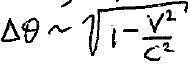 Δθ ~ √(1 - V²/C²)